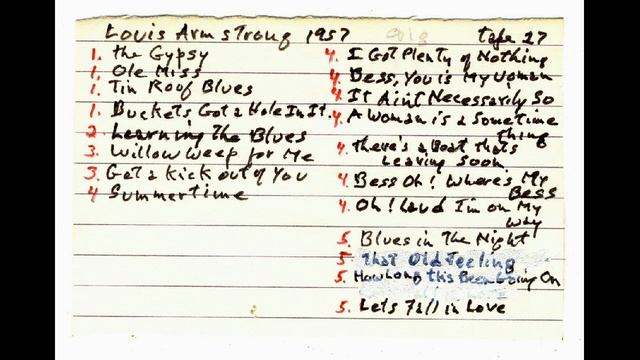 Louis Armstrong 1957 orig tape 27
1. The Gypsy
1. Ole Miss
1. Tin Roof Blues
1. Buckets Got a Hole In It.
2. Learning The Blues
3. Willow Weep for Me
3. Got a kick out of You
4 Summertime
4. I Got Plenty of Nothing
4. Bess, You is My Woman
4. It Aint Necessarily So
4. A Woman is a Sometime
thing
4. there's a Boat thats
Leaving Soon
4. Bess Oh! Where's My
Bess
4. Oh! Laud I'm on My
Way
5. Blues in The Night
5. That Old Feeling
5. How Long this Been Going On
5. Lets Fall in Love